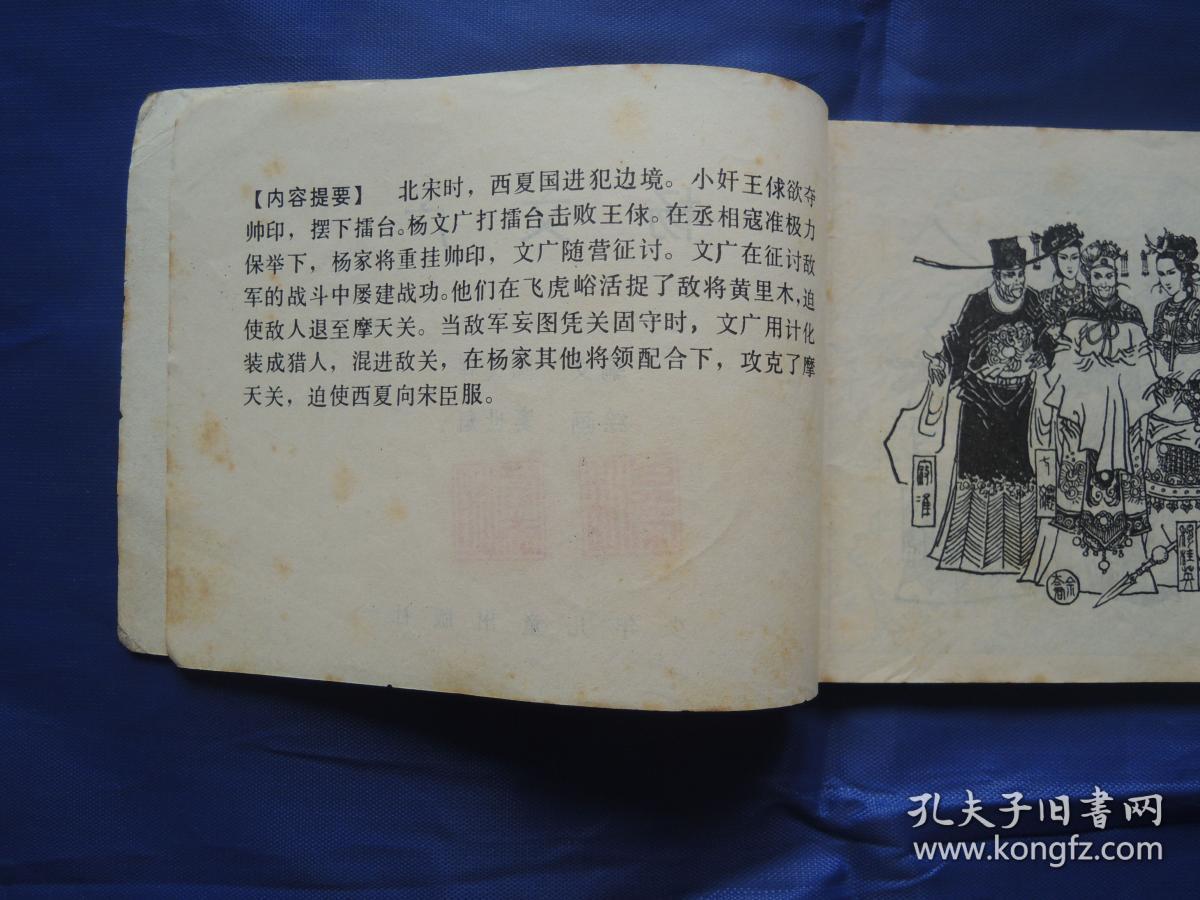 【内容提要】 北宋时，西夏国进犯边境。小奸王俅欲夺
帅印，摆下擂台。杨文广打擂台击败王俅。在丞相寇准极力
保举下，杨家将重挂帅印，文广随营征讨。文广在征讨敌
军的战斗中屡建战功。他们在飞虎峪活捉了敌将黄里木，迫
使敌人退至摩天关。当敌军妄图凭关固守时，文广用计化
装成猎人，混进敌关，在杨家其他将领配合下，攻克了摩
天关，迫使西夏向宋臣服。
少年儿童出版社
寇准
七娘
穆桂英
孔夫子旧书网
www.kongfz.com